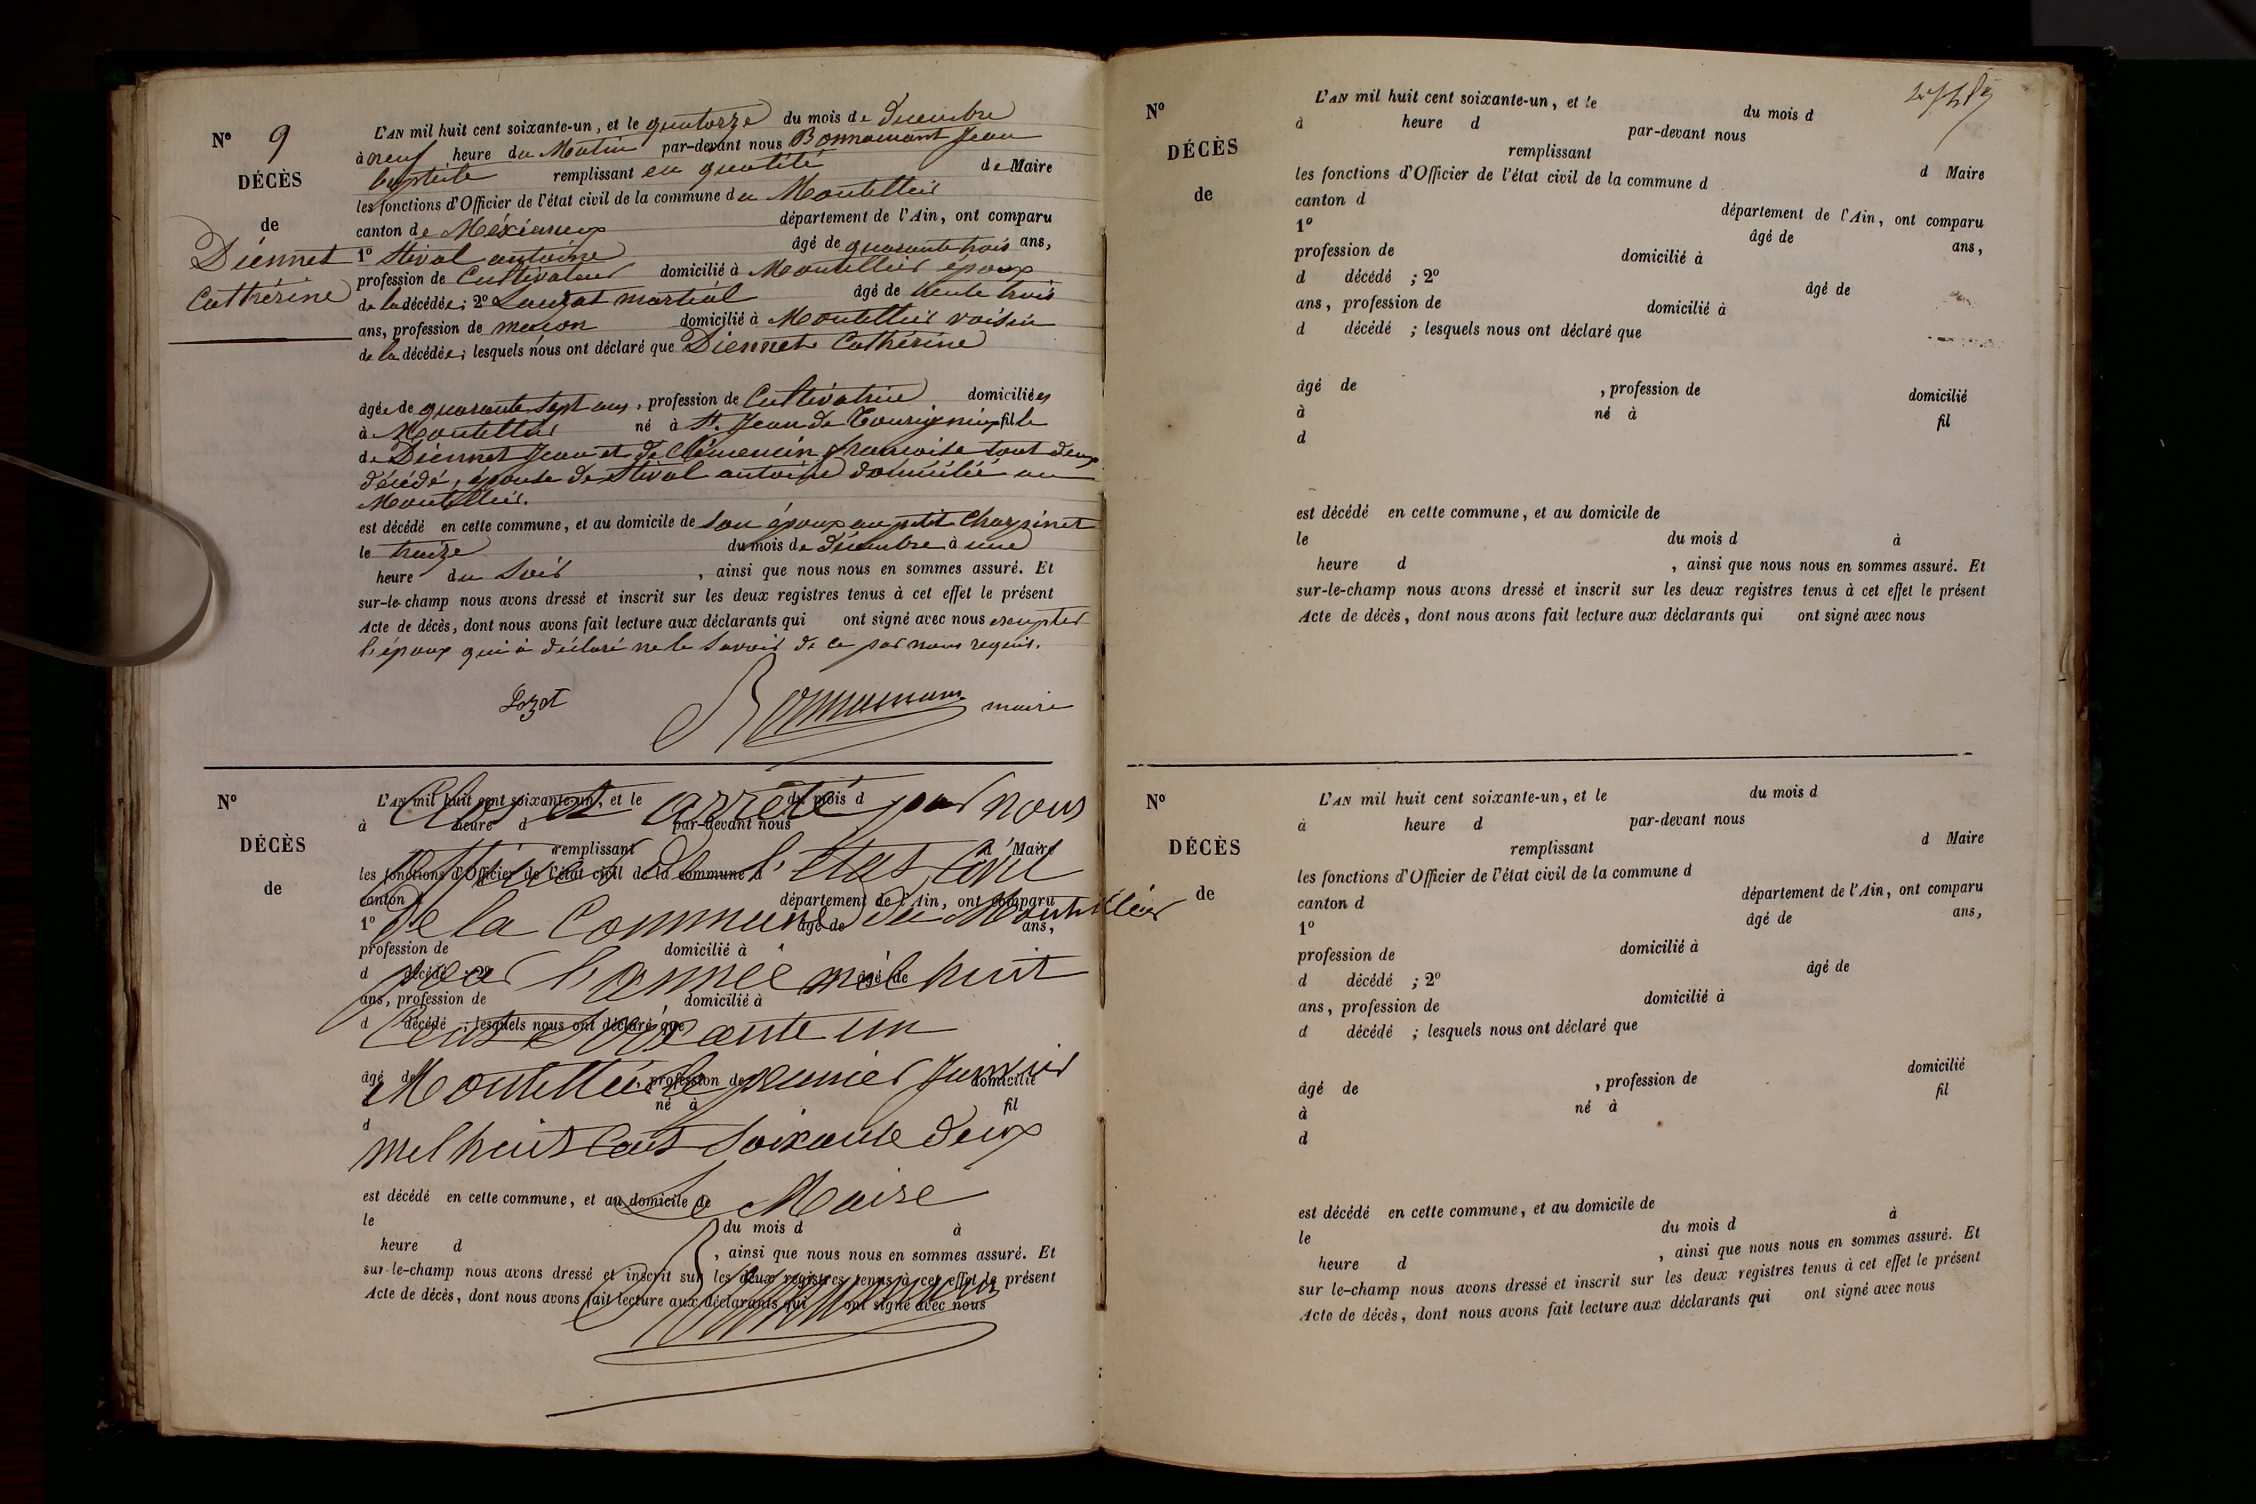 N° 9
DÉCÈS
de
Diennet
Catherine
L'AN mil huit cent soixante-un, et le quatorze du mois de Decembre
à neuf heure du Matin par-devant nous Bonnamant Jean
baptiste remplissant en qualité de Maire
les fonctions d'Officier de l'état civil de la commune du Montellier
canton de Méximieux département de l'Ain, ont comparu
1° Stival antoine âgé de quarante trois ans,
profession de Cultivateur domicilié à Montellier époux
de la décédée; 2° Lauzat martial âgé de trente trois
ans, profession de maçon domicilié à Montellier voisin
de la décédée; lesquels nous ont déclaré que Diennet Cathérine
âgée de quarante sept ans, profession de Cultivatrice domiciliée
à Montellier né à St. Jean de Tourigneux fille
de Diennet Jean et de Clémencin francoise tout deux
décédé, épouse de Stival antoine domicilié au
Montellier.
est décédé en cette commune, et au domicile de son époux au petit Charpinet
le treize du mois de décembre à une
heure du Soir, ainsi que nous nous en sommes assuré. Et
sur-le-champ nous avons dressé et inscrit sur les deux registres tenus à cet effet le présent
Acte de décès, dont nous avons fait lecture aux déclarants qui ont signé avec nous excepter
l'époux qui à déclaré ne le savoir de ce par nous requis.
Lozat maire
N°
DÉCÈS
de
L'AN mil huit cent soixante-un, et le du mois d
Clos et arrêté par nous
à heure d par-devant nous
remplissant d Maire
Officier de l'état Civil
les fonctions d'Officier de l'état civil de la commune d
canton d département de l'Ain, ont comparu
de la Commune du Montellier
1° âgé de ans,
profession de domicilié à
d décédé ; 2° âgé de
pour l'année mil huit
ans, profession de domicilié à
d décédé ; lesquels nous ont déclaré que
Cent Soixante un
âgé de , profession de domicilié
Montellier le premier Janvier
à né à fil
d
mil huit Cent Soixante deux
Le Maire
est décédé en cette commune, et au domicile de
le du mois d à
heure d , ainsi que nous nous en sommes assuré. Et
sur-le-champ nous avons dressé et inscrit sur les deux registres tenus à cet effet le présent
Acte de décès, dont nous avons fait lecture aux déclarants qui ont signé avec nous
N°
DÉCÈS
de
L'AN mil huit cent soixante-un, et le du mois d
à heure d par-devant nous
remplissant d Maire
les fonctions d'Officier de l'état civil de la commune d
canton d département de l'Ain, ont comparu
1° âgé de ans,
profession de domicilié à
d décédé ; 2° âgé de
ans, profession de domicilié à
d décédé ; lesquels nous ont déclaré que
âgé de , profession de domicilié
à né à fil
d
est décédé en cette commune, et au domicile de
le du mois d à
heure d , ainsi que nous nous en sommes assuré. Et
sur-le-champ nous avons dressé et inscrit sur les deux registres tenus à cet effet le présent
Acte de décès, dont nous avons fait lecture aux déclarants qui ont signé avec nous
N°
DÉCÈS
de
L'AN mil huit cent soixante-un, et le du mois d
à heure d par-devant nous
remplissant d Maire
les fonctions d'Officier de l'état civil de la commune d
canton d département de l'Ain, ont comparu
1° âgé de ans,
profession de domicilié à
d décédé ; 2° âgé de
ans, profession de domicilié à
d décédé ; lesquels nous ont déclaré que
âgé de , profession de domicilié
à né à fil
d
est décédé en cette commune, et au domicile de
le du mois d à
heure d , ainsi que nous nous en sommes assuré. Et
sur le-champ nous avons dressé et inscrit sur les deux registres tenus à cet effet le présent
Acte de décès, dont nous avons fait lecture aux déclarants qui ont signé avec nous